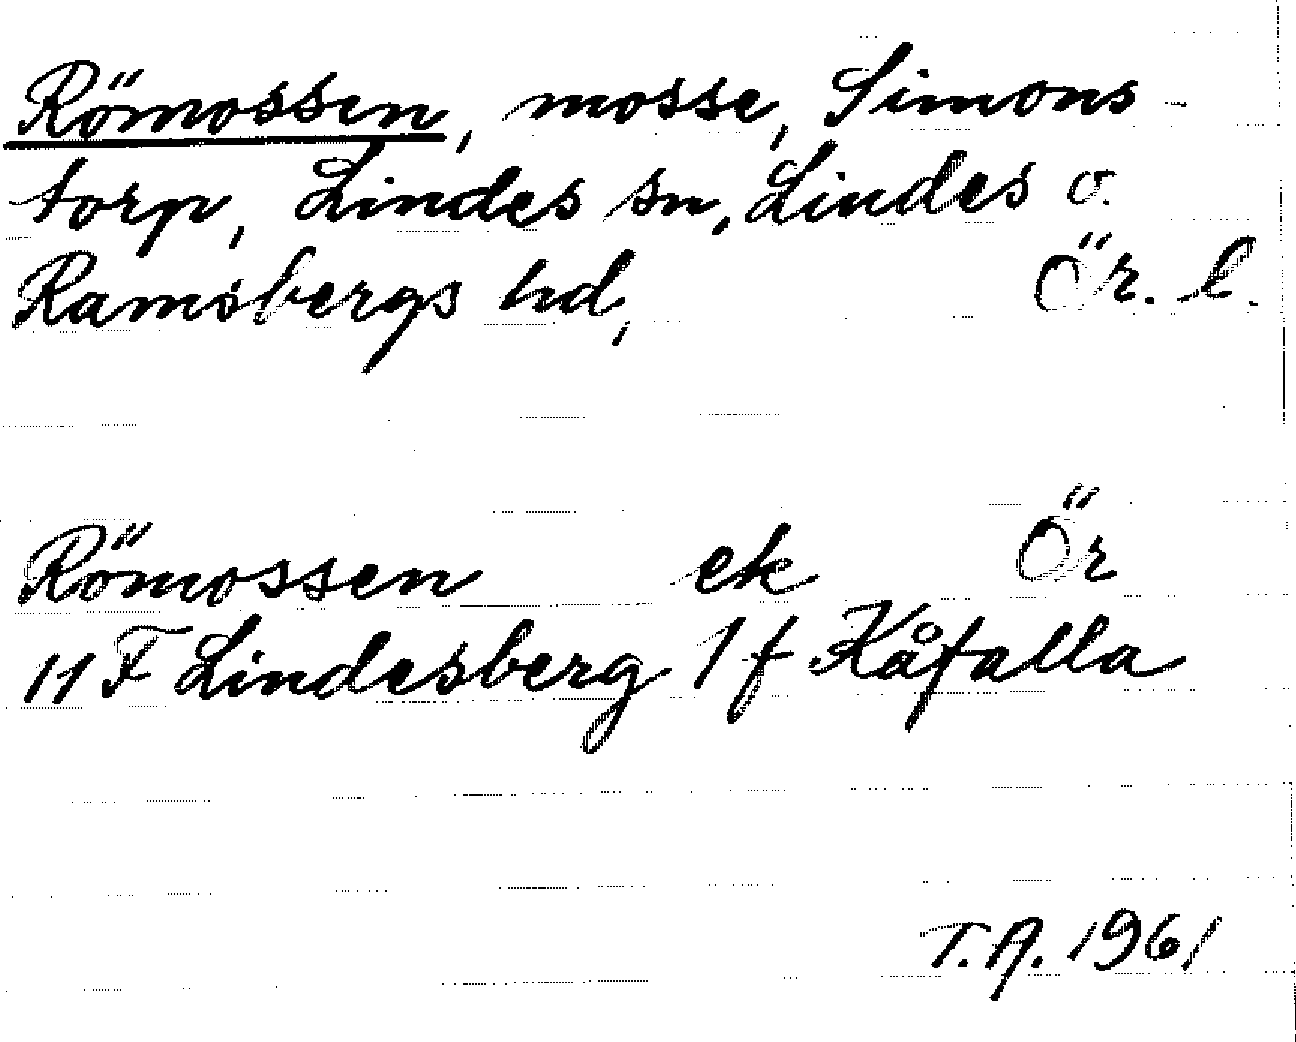 Römossen, mosse, Simons-
torp, Lindes sn, Lindes o.
Ramsbergs hd, Ör. l.
Römossen ek Ör
11 F Lindesberg 1 f Kåfalla
T.A. 1961